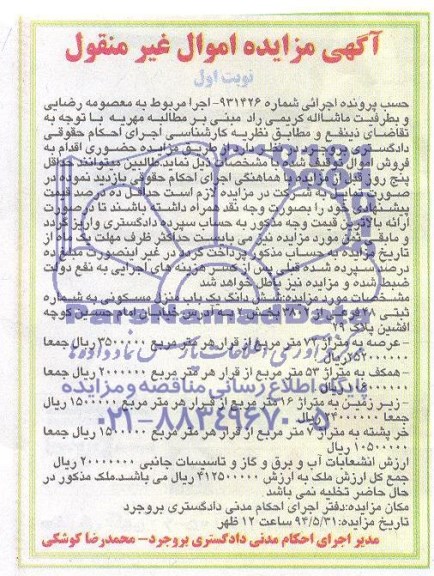 آگهی مزایده اموال غیر منقول
نوبت اول
حسب پرونده اجرائی شماره ۹۳۱۴۲۶- اجرا مربوط به معصومه رضایی
و بطرفیت ماشااله کریمی راد مبنی بر مطالبه مهریه با توجه به
تقاضای ذینفع و مطابق نظریه کارشناسی اجرای احکام حقوقی
دادگستری در نظر دارد از طریق مزایده حضوری اقدام به
فروش اموال توقیف شده با مشخصات ذیل نماید طالبین میتوانند حداقل
پنج روز قبل از مزایده با هماهنگی اجرای احکام حقوقی بازدید نموده در
صورت تمایل به شرکت در مزایده لازم است حداقل ده درصد قیمت
پیشنهادی خود را بصورت وجه نقد همراه داشته باشند تا در صورت
ارائه بالاترین قیمت وجه مذکور به حساب سپرده دادگستری واریز گردد
و مابقی مورد مزایده نیز می بایست حداکثر ظرف مهلت یک ماه از
تاریخ مزایده به حساب مذکور پرداخت گردد در غیر اینصورت مبلغ ده
درصد سپرده شده پس از کسر هزینه های اجرایی به نفع دولت
ضبط شده و مزایده نیز باطل خواهد شد
مشخصات مورد مزایده: شش دانگ یک باب منزل مسکونی به شماره
ثبتی فرعی از بخش به آدرس خیابان امام خمینی کوچه
افشین پلاک ۲۹
- عرصه به متراژ ۷۲ متر مربع از قرار هر متر مربع ۳۵۰۰۰۰۰ ریال
جمعا ۲۵۲۰۰۰۰۰۰ ریال
- همکف به متراژ ۵۳ متر مربع از قرار هر متر مربع ۲۰۰۰۰۰۰ ریال
جمعا ریال
- زیر زمین به متراژ ۱۶ متر مربع از قرار هر متر مربع ۱۵۰۰۰۰۰ ریال
جمعا ۲۴۰۰۰۰۰۰ ریال
خر پشته به متراژ ۷ متر مربع از قرار هر متر مربع ۱۵۰۰۰۰۰ ریال جمعا
۱۰۵۰۰۰۰۰
ارزش انشعابات آب و برق و گاز و تاسیسات جانبی ۲۰۰۰۰۰۰۰ ریال
جمع کل ارزش ملک به ارزش ۴۱۲۵۰۰۰۰۰ ریال می باشد. ملک مذکور در
حال حاضر تخلیه نمی باشد
مکان مزایده: دفتر اجرای احکام مدنی دادگستری بروجرد
تاریخ مزایده: ۹۴/۵/۳۱ ساعت ۱۲ ظهر
مدیر اجرای احکام مدنی دادگستری بروجرد- محمدرضا کوشکی
ParsNamadData
پایگاه اطلاع رسانی مناقصه و مزایده
۰۲۱-۸۸۳۴۹۶۷۰-۵